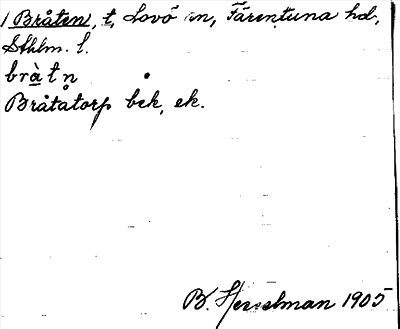 Bråten, t, Lovö sn, Färentuna hd,
Sthlm. l.
bràtn̥
Bråtatorp bek, ek.
B. Hesselman 1905